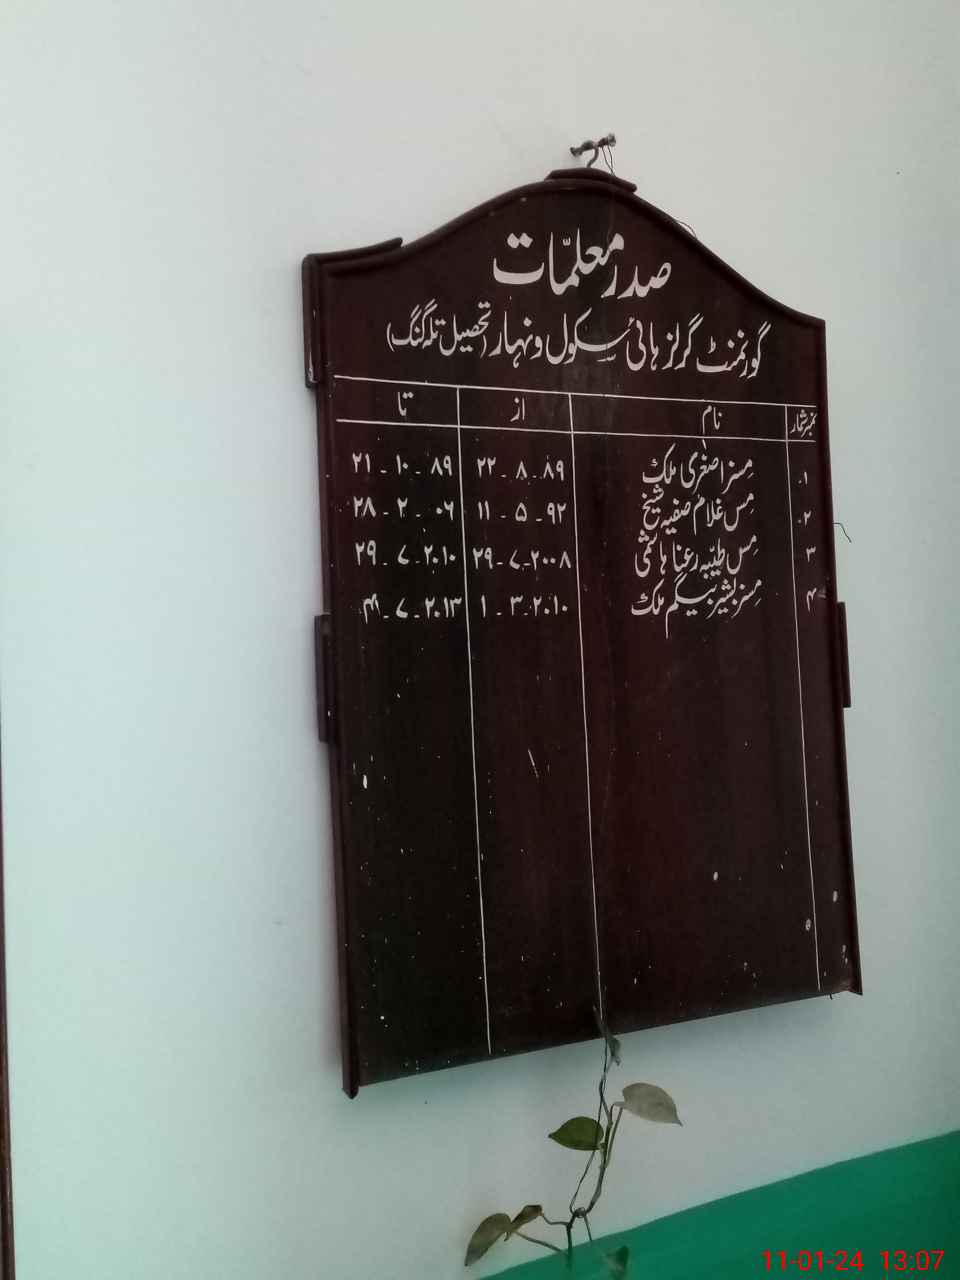 صدر معلمّات
گورنمنٹ گرلز ہائی سکول ونہار (تحصیل تلہ گنگ)
نمبر شمار نام از تا
۱. مسز اصغری ملک ۲۲ - ۸ - ۸۹ ۲۱ - ۱۰ - ۸۹
۲. مس غلام صفیہ شیخ ۱۱ - ۵ - ۹۲ ۲۸ - ۲ - ۰۶
۳ مس طیبّہ رعنا ہاشمی ۲۹ - ۷ - ۲۰۰۸ ۲۹ - ۷ - ۲۰۱۰
۴ مسز بشیر بیگم ملک ۱ - ۳ - ۲۰۱۰ - ۷ - ۲۰۱۳
11-01-24 13:07